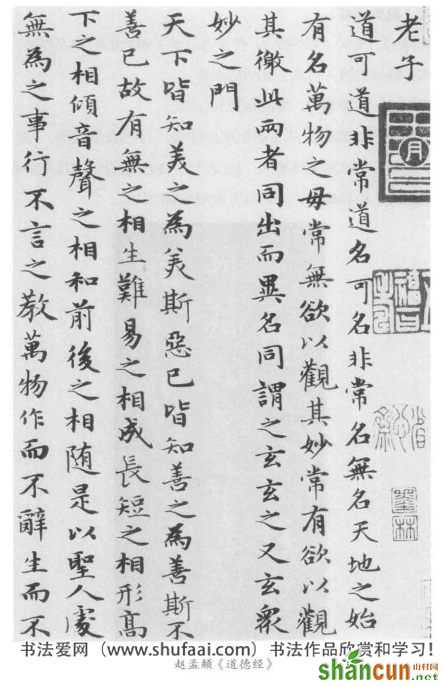 老子
道可道非常道名可名非常名無名天地之始
有名萬物之母常無欲以觀其妙常有欲以觀
其徼此兩者同出而異名同謂之玄玄之又玄眾
妙之門
天下皆知美之為美斯惡已皆知善之為善斯不
善已故有無之相生難易之相成長短之相形高
下之相傾音聲之相和前後之相随是以聖人處
無為之事行不言之教萬物作而不辭生而不
书法爱网（www.shufaai.com）书法作品欣赏和学习！
赵孟頫《道德经》
shancun 山村网
.net